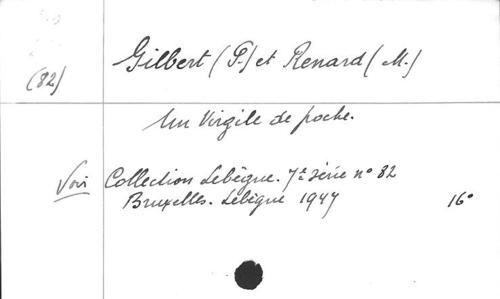 Gilbert (P.) et Renard (M.)
(82)
Un Virgile de poche.
Voir Collection Lebègue. 7e série n° 82
Bruxelles. Lebègue 1947 16°